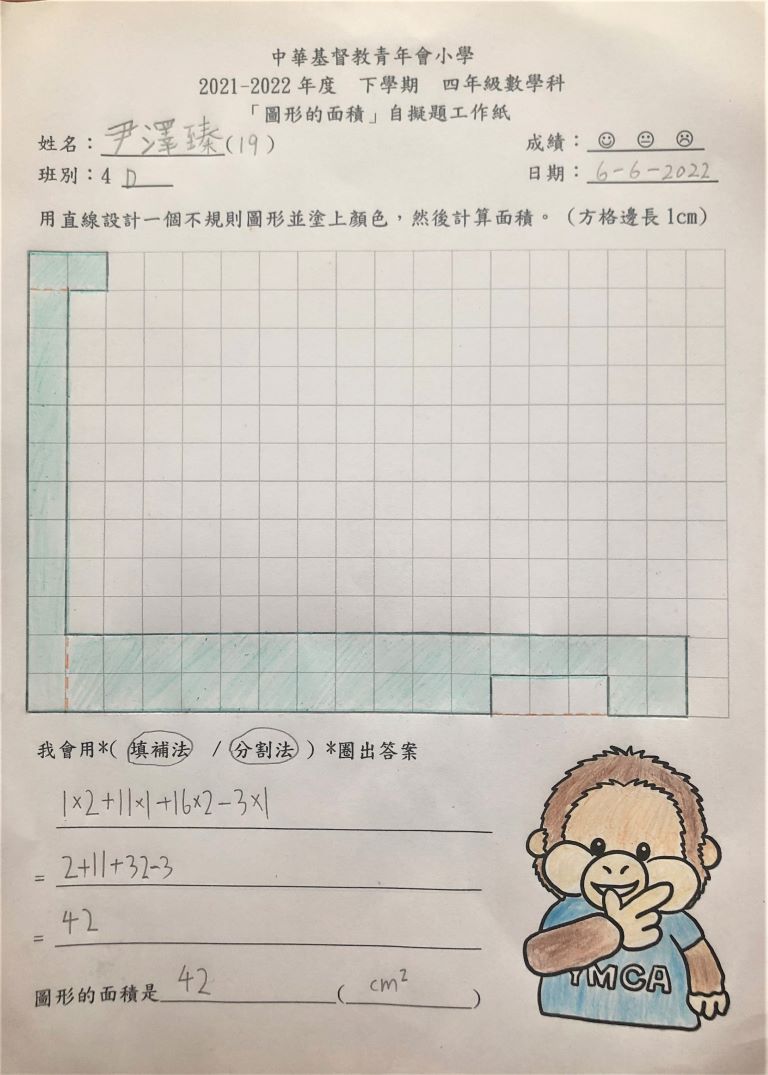 中華基督教青年會小學
2021-2022 年度 下學期 四年級數學科
「圖形的面積」自擬題工作紙
姓名：尹澤臻(19) 成績：
班別：4 D 日期：6-6-2022
用直線設計一個不規則圖形並塗上顏色，然後計算面積。（方格邊長 1cm）
我會用*( 填補法 / 分割法 ) *圈出答案
1×2+11×1+16×2-3×1
= 2+11+32-3
= 42
圖形的面積是 42 ( cm² )
YMCA